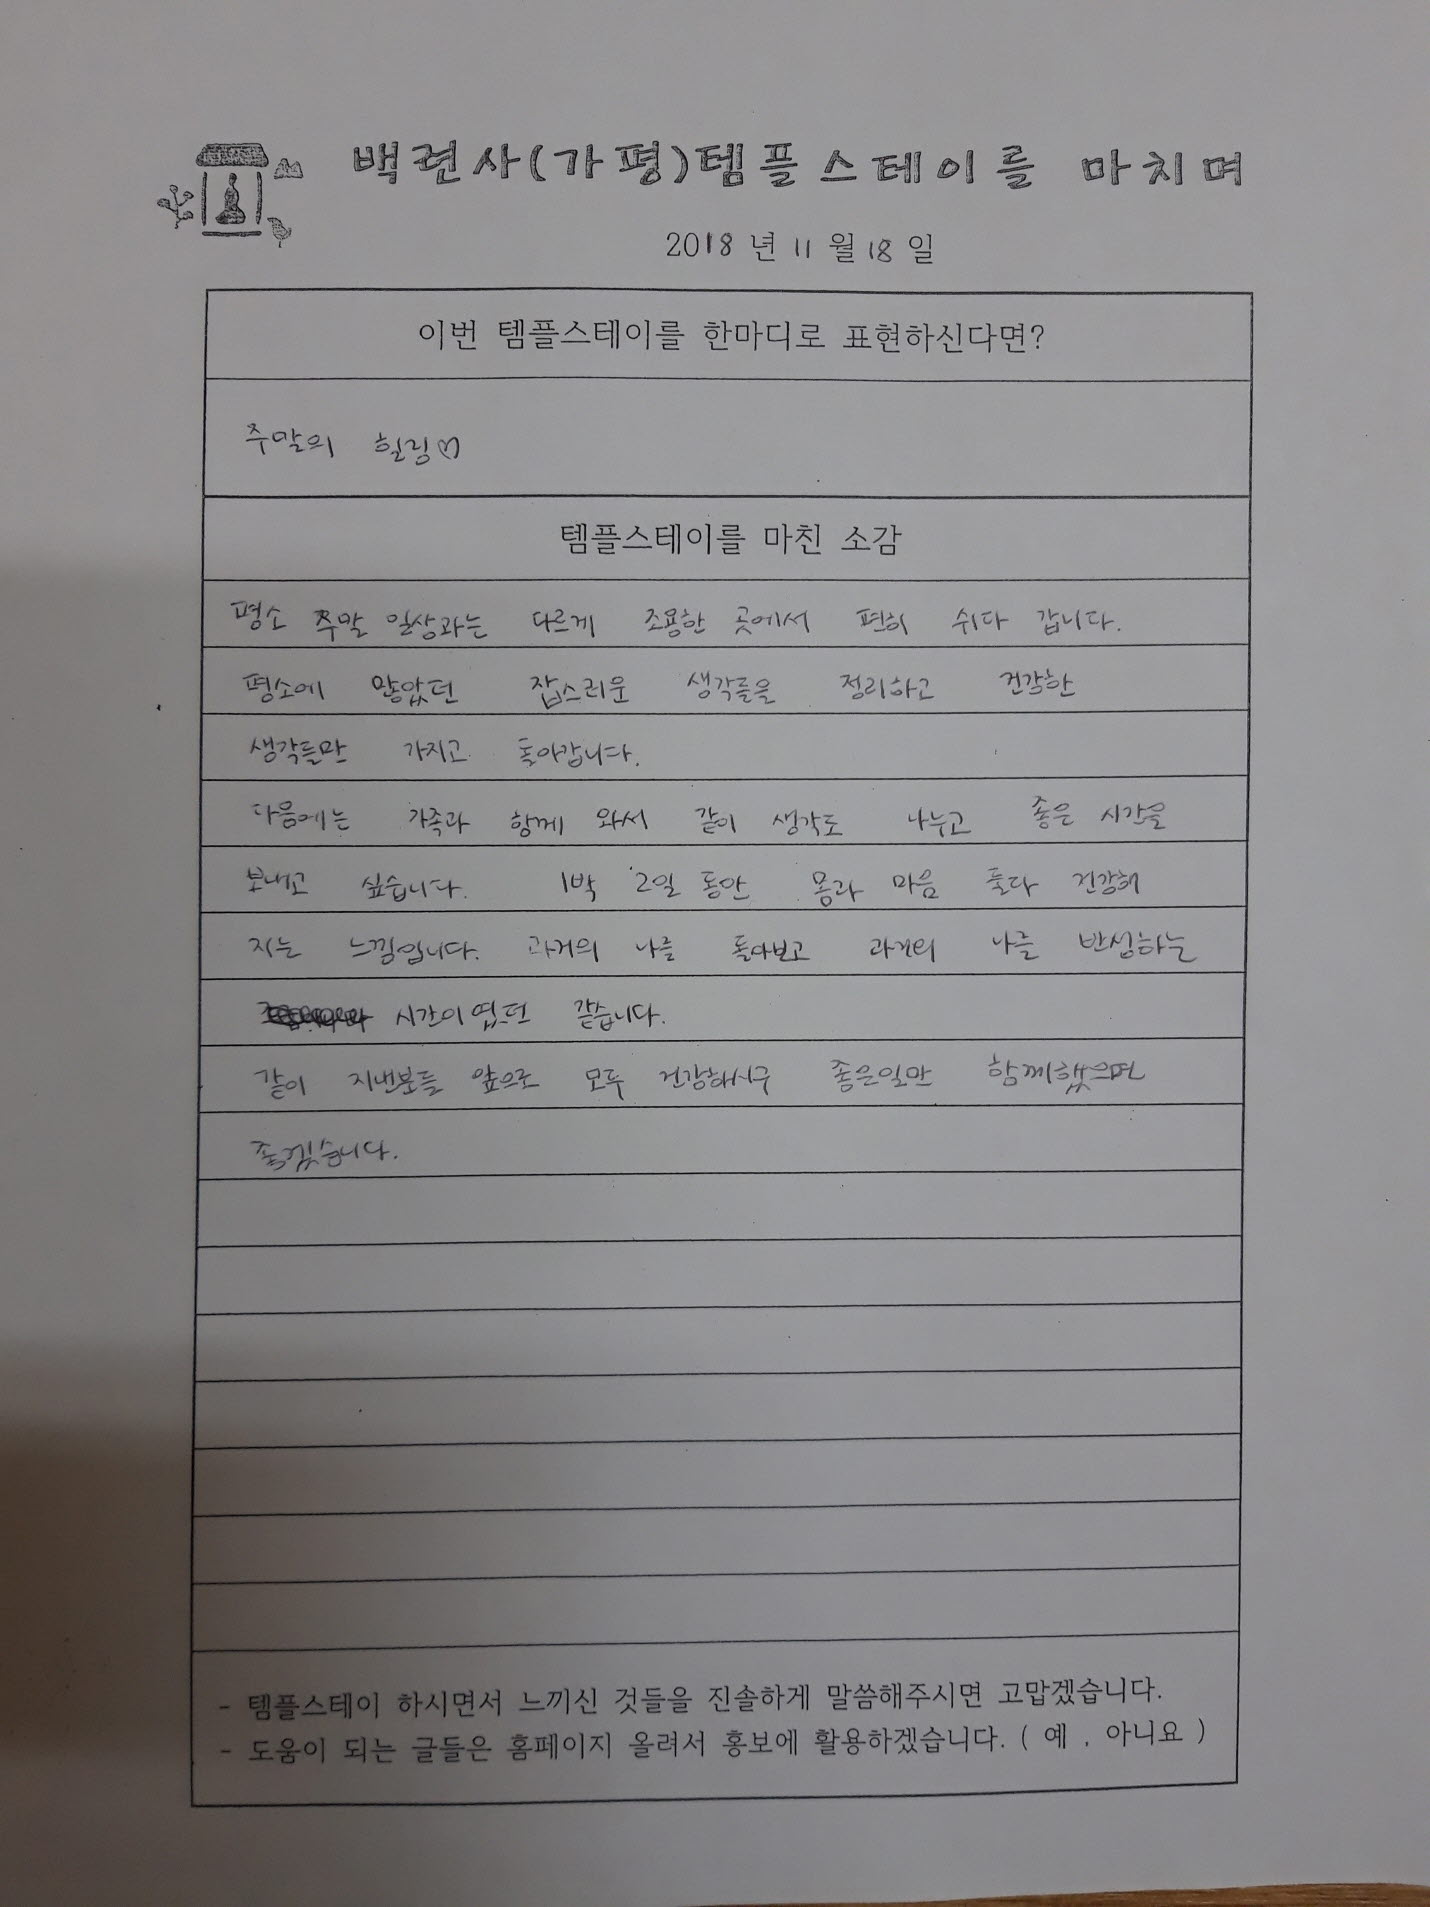 백련사(가평)템플스테이를 마치며
2018 년 11 월 18 일
이번 템플스테이를 한마디로 표현하신다면?
주말의 힐링♡
템플스테이를 마친 소감
평소 주말 일상과는 다르게 조용한 곳에서 편히 쉬다 갑니다.
평소에 많았던 잡스러운 생각들을 정리하고 건강한
생각들만 가지고 돌아갑니다.
다음에는 가족과 함께 와서 같이 생각도 나누고 좋은 시간을
보내고 싶습니다. 1박 2일 동안 몸과 마음 둘다 건강해
지는 느낌입니다. 과거의 나를 돌아보고 과거의 나를 반성하는
시간이였던 같습니다.
같이 지낸분들 앞으로 모두 건강하시구 좋은일만 함께했으면
좋겠습니다.
- 템플스테이 하시면서 느끼신 것들을 진솔하게 말씀해주시면 고맙겠습니다.
- 도움이 되는 글들은 홈페이지 올려서 홍보에 활용하겠습니다. ( 예 , 아니요 )